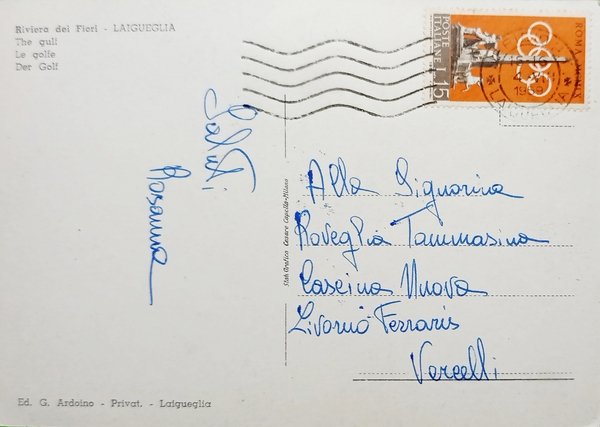 Riviera dei Fiori - LAIGUEGLIA
The gulf
Le golfe
Der Golf
POSTE ITALIANE L. 15
ROMA MCMLIX
1959
Saluti
Rosanna
Stab. Grafico Cesare Capello - Milano
Alla Signorina
Roveglia Tammasina
Cascina Nuova
Livorno Ferraris
Vercelli
Ed. G. Ardoino - Privat. - Laigueglia